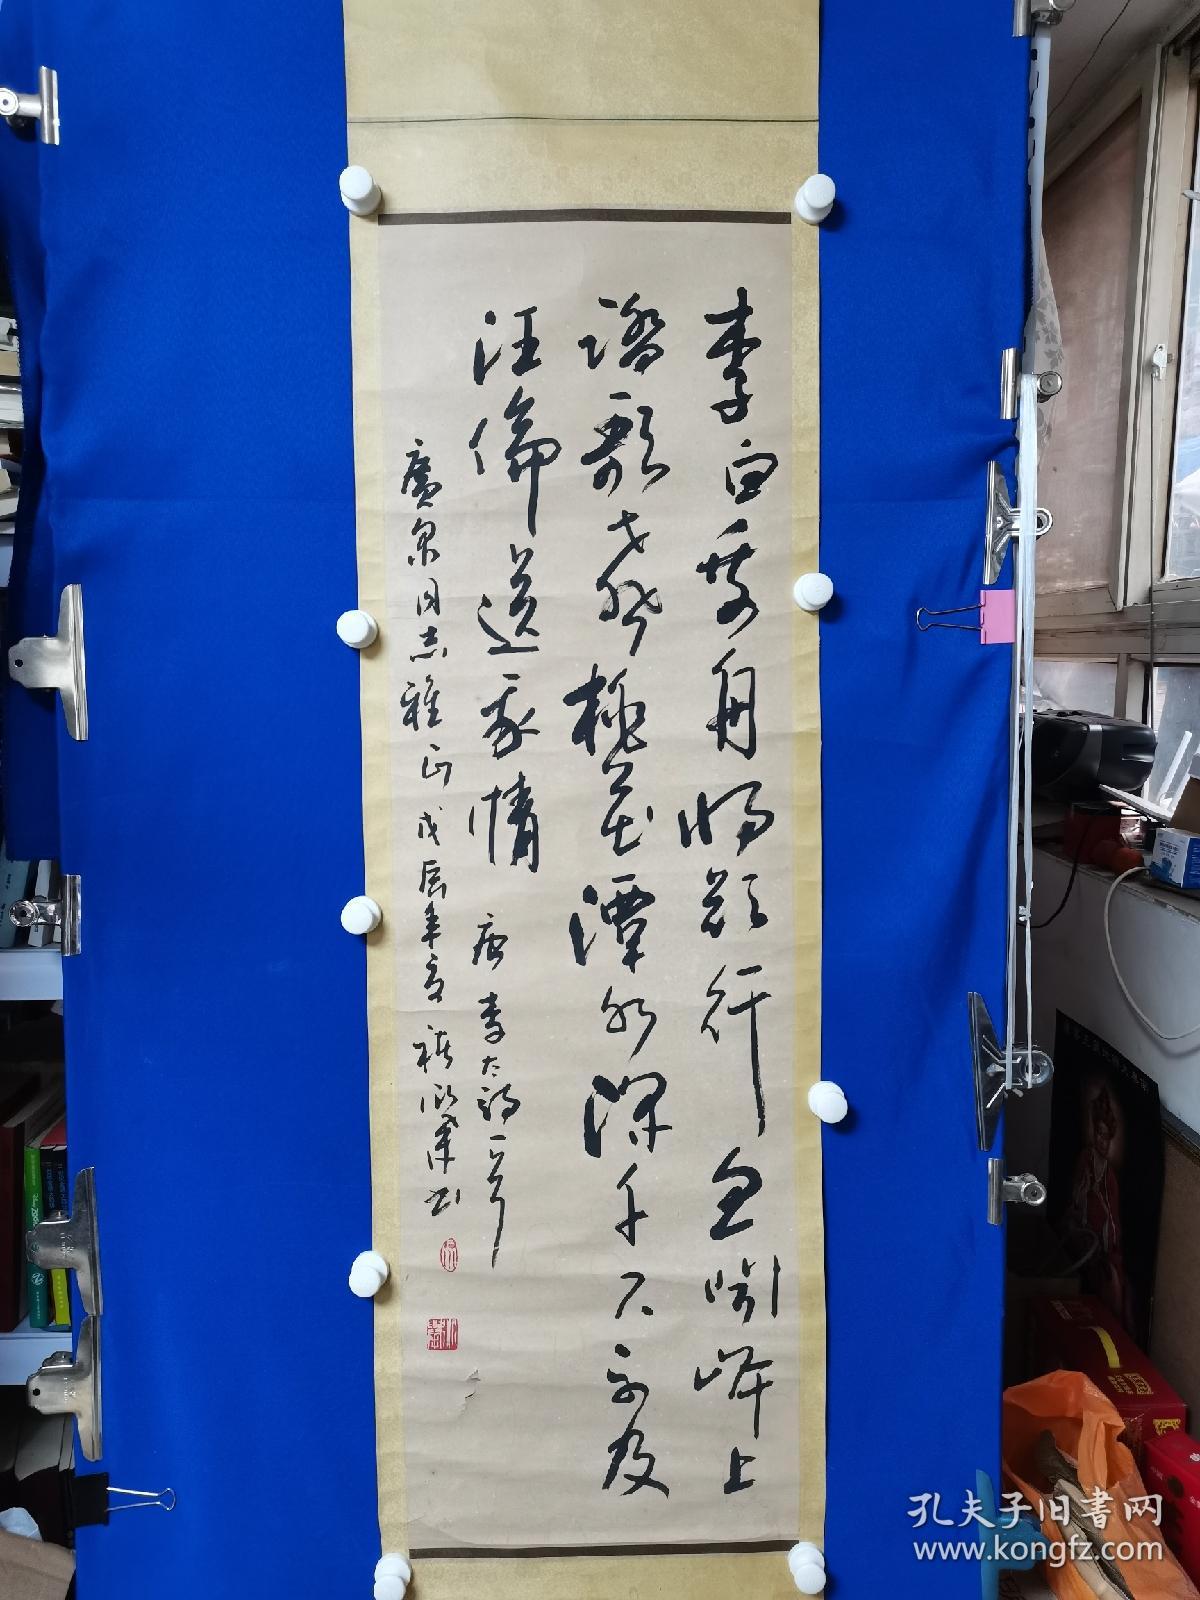 李白乘舟將欲行忽聞岸上
踏歌聲桃花潭水深千尺不及
汪倫送我情 唐李太詩一
廣泉同志雅正戊辰年夏
孔夫子旧書网
www.kongfz.com